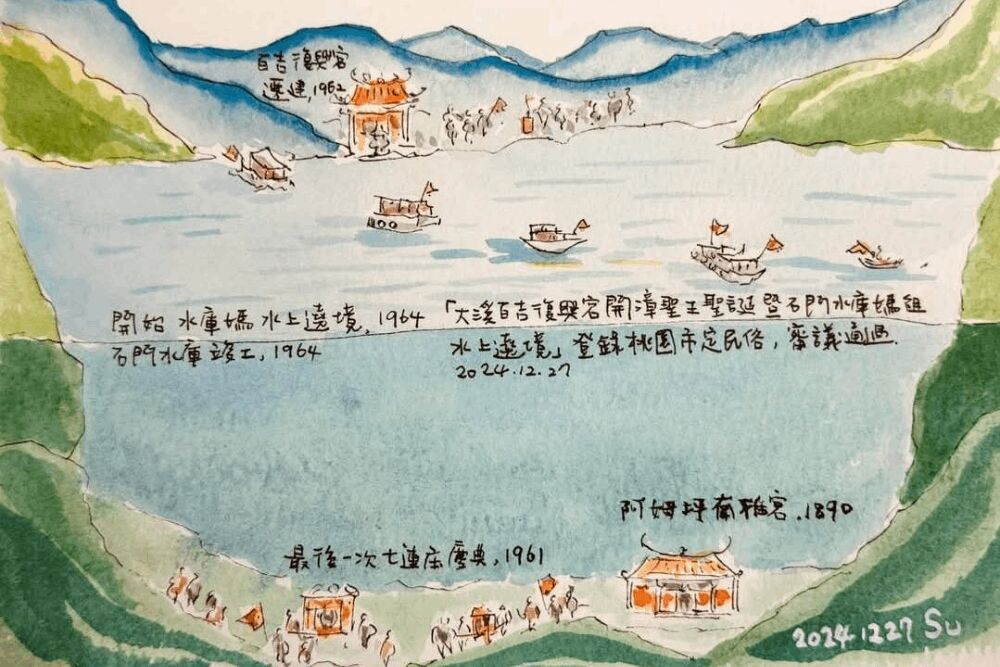 百吉復興宮
遷建,1962
開始 水庫媽水上遶境, 1964
石門水庫竣工, 1964
「大溪百吉復興宮開漳聖王聖誕暨石門水庫媽祖
水上遶境」登錄桃園市定民俗, 審議通過.
2024.12.27
阿姆坪南雅宮.1890
最後一次七連庄慶典, 1961
2024.1227 Su